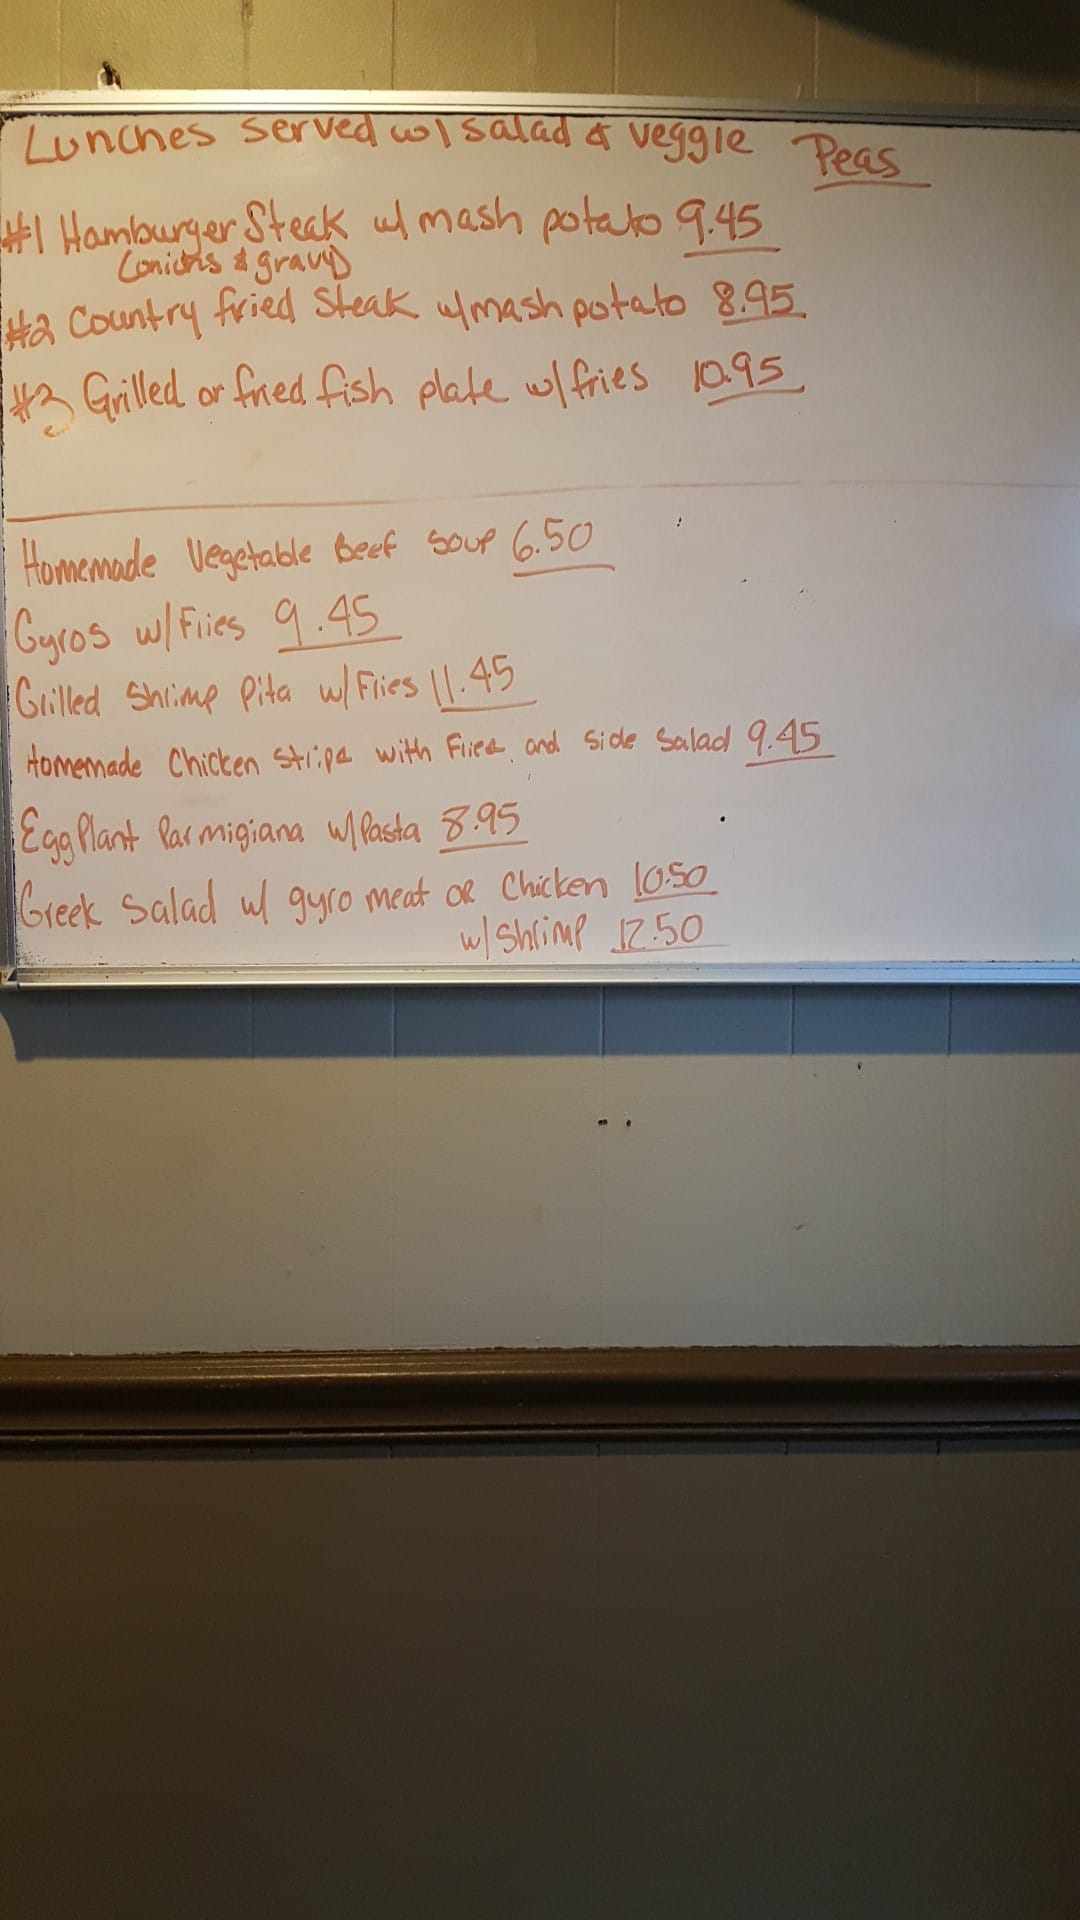 Lunches served w/ salad & veggie Peas
#1 Hamburger Steak w/ mash potato 9.45
(onions & gravy)
#2 Country fried Steak w/ mash potato 8.95
#3 Grilled or fried fish plate w/ fries 10.95
Homemade Vegetable Beef Soup 6.50
Gyros w/ Fries 9.45
Grilled Shrimp Pita w/ Fries 11.45
Homemade Chicken Strips with Fries and Side Salad 9.45
EggPlant Parmigiana w/ Pasta 8.95
Greek Salad w/ gyro meat or Chicken 10.50
w/ Shrimp 12.50